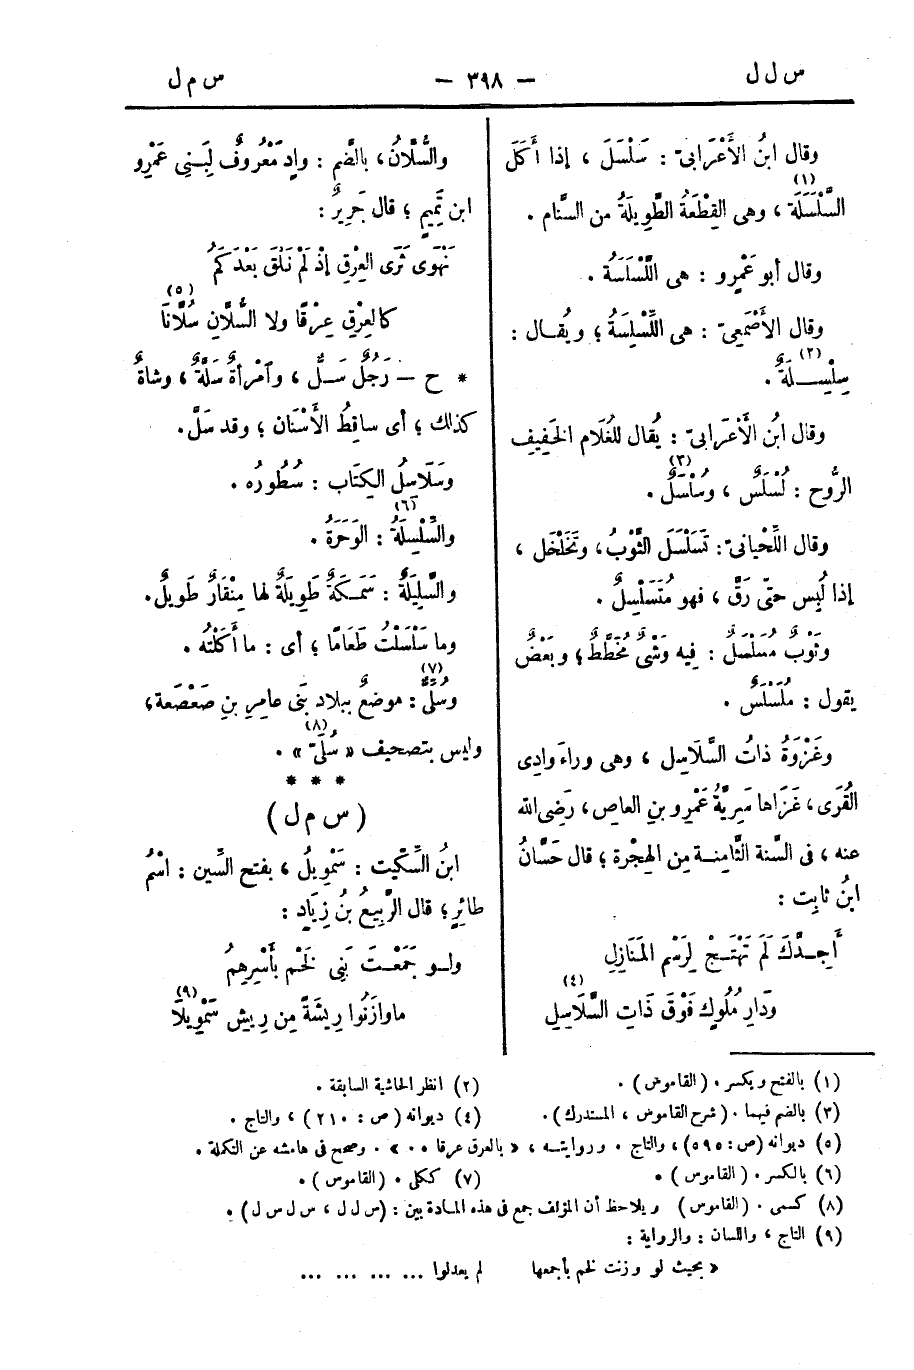 س ل ل — ٣٩٨ — س م ل
وقال ابنُ الأَعْرَابىّ : سَلْسَلَ ، إذا أَكَلَ
السَّلْسَلَةَ (١) ، وهى القِطْعَةُ الطَّوِيلَةُ من السَّنام .
وقال أبو عَمْرٍو : هى اللَّسْلَسَةُ .
وقال الأَصْمَعِىّ : هى اللِّسْلِسَةُ ؛ ويُقـال :
سِلْسِـــلَةٌ (٢) .
وقال ابنُ الأَعْرَابىّ : يُقال للغُلَام الخَفِيفِ
الرُّوح : لُسْلُسٌ ، وسُلْسُلٌ (٣) .
وقال اللِّحْيانىّ : تَسَلْسَلَ الثَّوْبُ ، وتَخَلْخَل ،
إذا لُبِس حتّى رَقَّ ، فهو مُتَسَلْسِلٌ .
وثَوْبٌ مُسَلْسَلٌ : فِيه وَشْىٌ مُخَطَّطٌ ؛ وبَعْضٌ
يقول : مُلَسْلَسٌ .
وغَزْوَةُ ذاتُ السَّلَاسِل ، وهى وراءَ وادِى
القُرَى ، غَزَاها سَرِيَّةُ عَمْرِو بنِ العاص ، رَضِى الله
عنه ، فى السَّنة الثَّامِنــة مِن الهِجْرة ؛ قال حَسَّانُ
ابنُ ثابِت :
أَجِــدَّكَ لَمْ تَهْتَــجْ لِرَسْمِ المَنَازِلِ
ودَارِ مُلُوكٍ فَوْقَ ذَاتِ السَّلَاسِلِ (٤)
والسُّلَّانُ ، بالضَّم : وادٍ مَعْرُوفٌ لِبَنِى عَمْرِو
ابن تَمِيمٍ ؛ قال جَرِيرٌ :
نَهْوَى ثَرَى العِرْقِ إذْ لَمْ نَلْقَ بَعْدَكُمُ
كالعِرْقِ عِرْقًا ولا السُّلَّانِ سُلَّانَا (٥)
* ح – رَجُلٌ سَــلٌّ ، وآمْرأةٌ سَلَّةٌ ، وشاةٌ
كذلك ؛ أى ساقِطُ الأَسْنَان ؛ وقد سَلَّ .
وسَلَاسِلُ الكِتَاب : سُطُورُه .
والسِّلْسِلَةُ (٦) : الوَحَرَةُ .
والسَّلِيلَةُ : سَمَـكَةٌ طَوِيلَةٌ لها مِنْقَارٌ طَوِيلٌ .
وما سَلْسَلْتُ طَعَامًا ؛ أى : ما أَكَلْتُه .
وسُلَّى (٧) : موضعٌ ببلاد بَنى عامِرِ بنِ صَعْصَعة ،
وليس بتصحيف « سُلَىّ » (٨) .
* * *
( س م ل )
ابنُ السِّكِّيت : سَمْوِيلُ ، بفتح السين : اسْمُ
طائِرٍ ؛ قال الرَّبِيعُ بنُ زِيَادٍ :
ولــو جَمَعْــتَ بَنِى لَخْمٍ بأَسْرِهِمُ
ماوازَنُوا رِيشَةً مِن رِيش سَمْوِيلَا (٩)
(١) بالفتح ويكسر . (القاموس) .
(٢) انظر الحاشية السابقة .
(٣) بالضم فيهما . (شرح القاموس ، المستدرك) .
(٤) ديوانه (ص : ٢١٠) ، والتاج .
(٥) ديوانه (ص : ٥٩٥) ، والتاج . وروايتــه ، « بالعرق عرقا .. » . وصحح فى هامشه عن التكملة .
(٦) بالكسر . (القاموس) .
(٧) ككلى . (القاموس) .
(٨) كسمى . (القاموس) ويلاحظ أن المؤلف جمع فى هذه المـادة بين : (س ل ل ، س ل س ل) .
(٩) التاج ، واللسان : والرواية :
« بحيث لو وزنت لخم بأجمعها لم يعدلوا ... ... ... ...